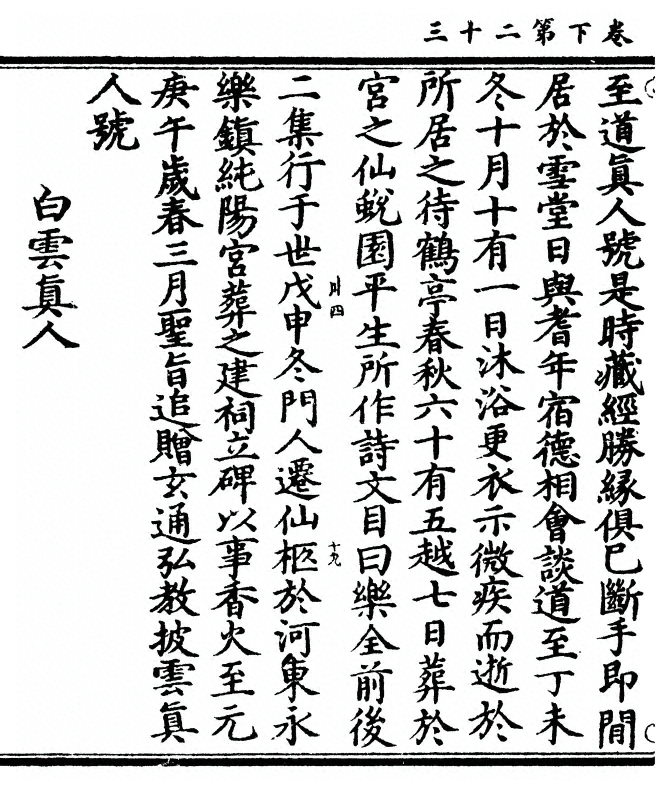 卷下第二十三
至道眞人號是時藏經勝縁俱已斷手即閒
居於雪堂日與耆年宿德相會談道至丁未
冬十月十有一日沐浴更衣示微疾而逝於
所居之待鶴亭春秋六十有五越七日葬於
宮之仙蛻園平生所作詩文目曰樂全前後
二集行于世戊申冬門人遷仙柩於河東永
樂鎮純陽宮葬之建祠立碑以事香火至元
庚午歲春三月聖旨追贈玄通弘教披雲眞
人號
白雲眞人